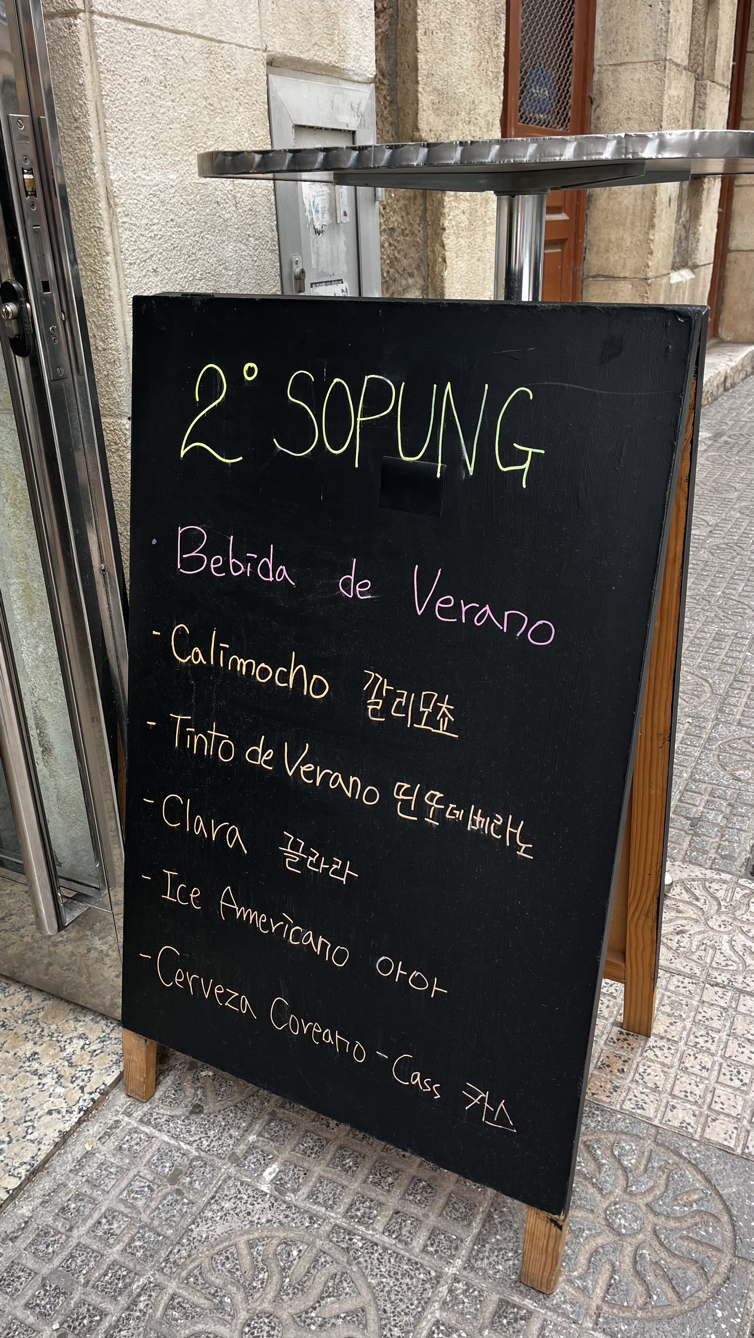 2° SOPUNG
Bebida de Verano
- Calimocho 깔리모쵸
- Tinto de Verano 띤또데베라노
- Clara 끌라라
- Ice Americano 아아
- Cerveza Coreano - Cass 카스